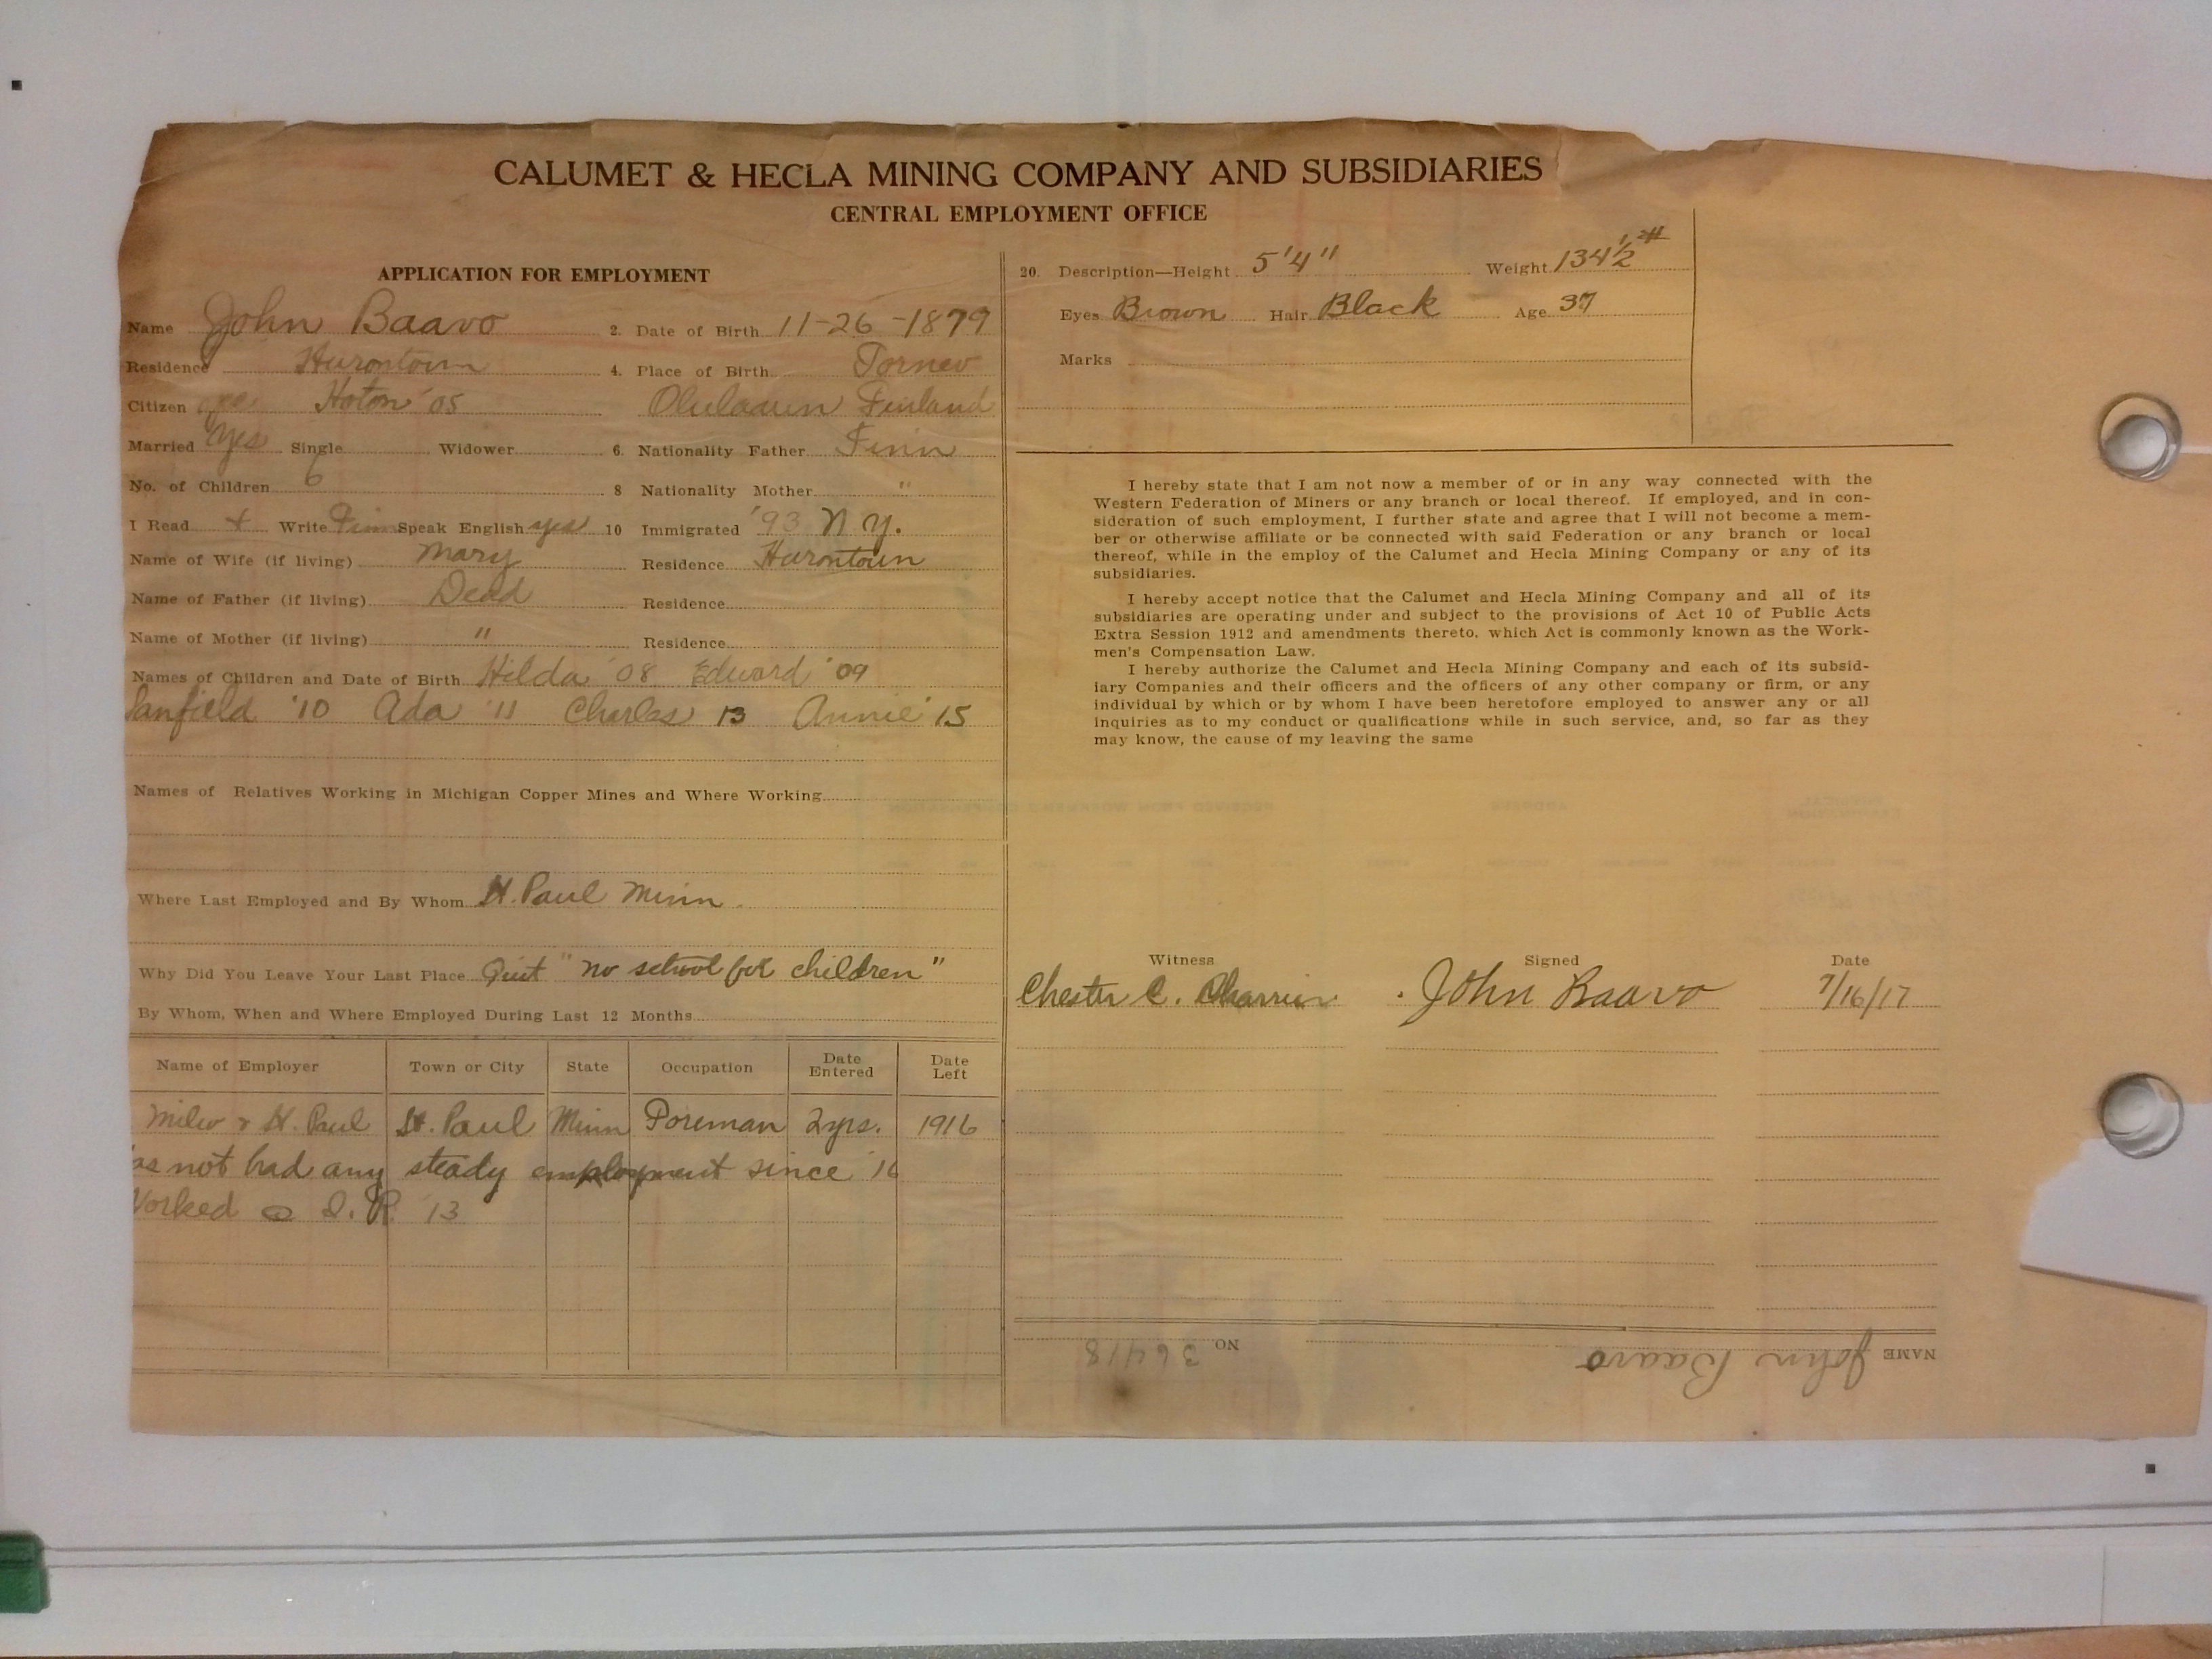 CALUMET & HECLA MINING COMPANY AND SUBSIDIARIES
CENTRAL EMPLOYMENT OFFICE
APPLICATION FOR EMPLOYMENT
Name John Baavo 2. Date of Birth 11-26-1879
Residence Hurontown 4. Place of Birth Torneo
Citizen Hoton '05 Olulaaun Finland
Married Yes Single Widower 6. Nationality Father Finn
No. of Children 6 8 Nationality Mother "
I Read + Write Finn Speak English yes 10 Immigrated '93 N.Y.
Name of Wife (if living) Mary Residence Hurontown
Name of Father (if living) Dead Residence
Name of Mother (if living) " Residence
Names of Children and Date of Birth Hilda '08 Edward '09
Sanfield '10 Ada '11 Charles 13 Annie '15
Names of Relatives Working in Michigan Copper Mines and Where Working
Where Last Employed and By Whom St. Paul Minn.
Why Did You Leave Your Last Place Quit "no school for children"
By Whom, When and Where Employed During Last 12 Months
Name of Employer Town or City State Occupation Date Entered Date Left
Milw & St. Paul St. Paul Minn Foreman 2yrs. 1916
as not had any steady employment since '16
Worked @ I. R. 13
20. Description—Height 5'4" Weight 134½ #
Eyes Brown Hair Black Age 37
Marks
I hereby state that I am not now a member of or in any way connected with the
Western Federation of Miners or any branch or local thereof. If employed, and in con-
sideration of such employment, I further state and agree that I will not become a mem-
ber or otherwise affiliate or be connected with said Federation or any branch or local
thereof, while in the employ of the Calumet and Hecla Mining Company or any of its
subsidiaries.
I hereby accept notice that the Calumet and Hecla Mining Company and all of its
subsidiaries are operating under and subject to the provisions of Act 10 of Public Acts
Extra Session 1912 and amendments thereto, which Act is commonly known as the Work-
men's Compensation Law.
I hereby authorize the Calumet and Hecla Mining Company and each of its subsid-
iary Companies and their officers and the officers of any other company or firm, or any
individual by which or by whom I have been heretofore employed to answer any or all
inquiries as to my conduct or qualifications while in such service, and, so far as they
may know, the cause of my leaving the same
Witness Signed Date
Chester C. John Baavo 7/16/17
NAME John Baavo NO. 36418